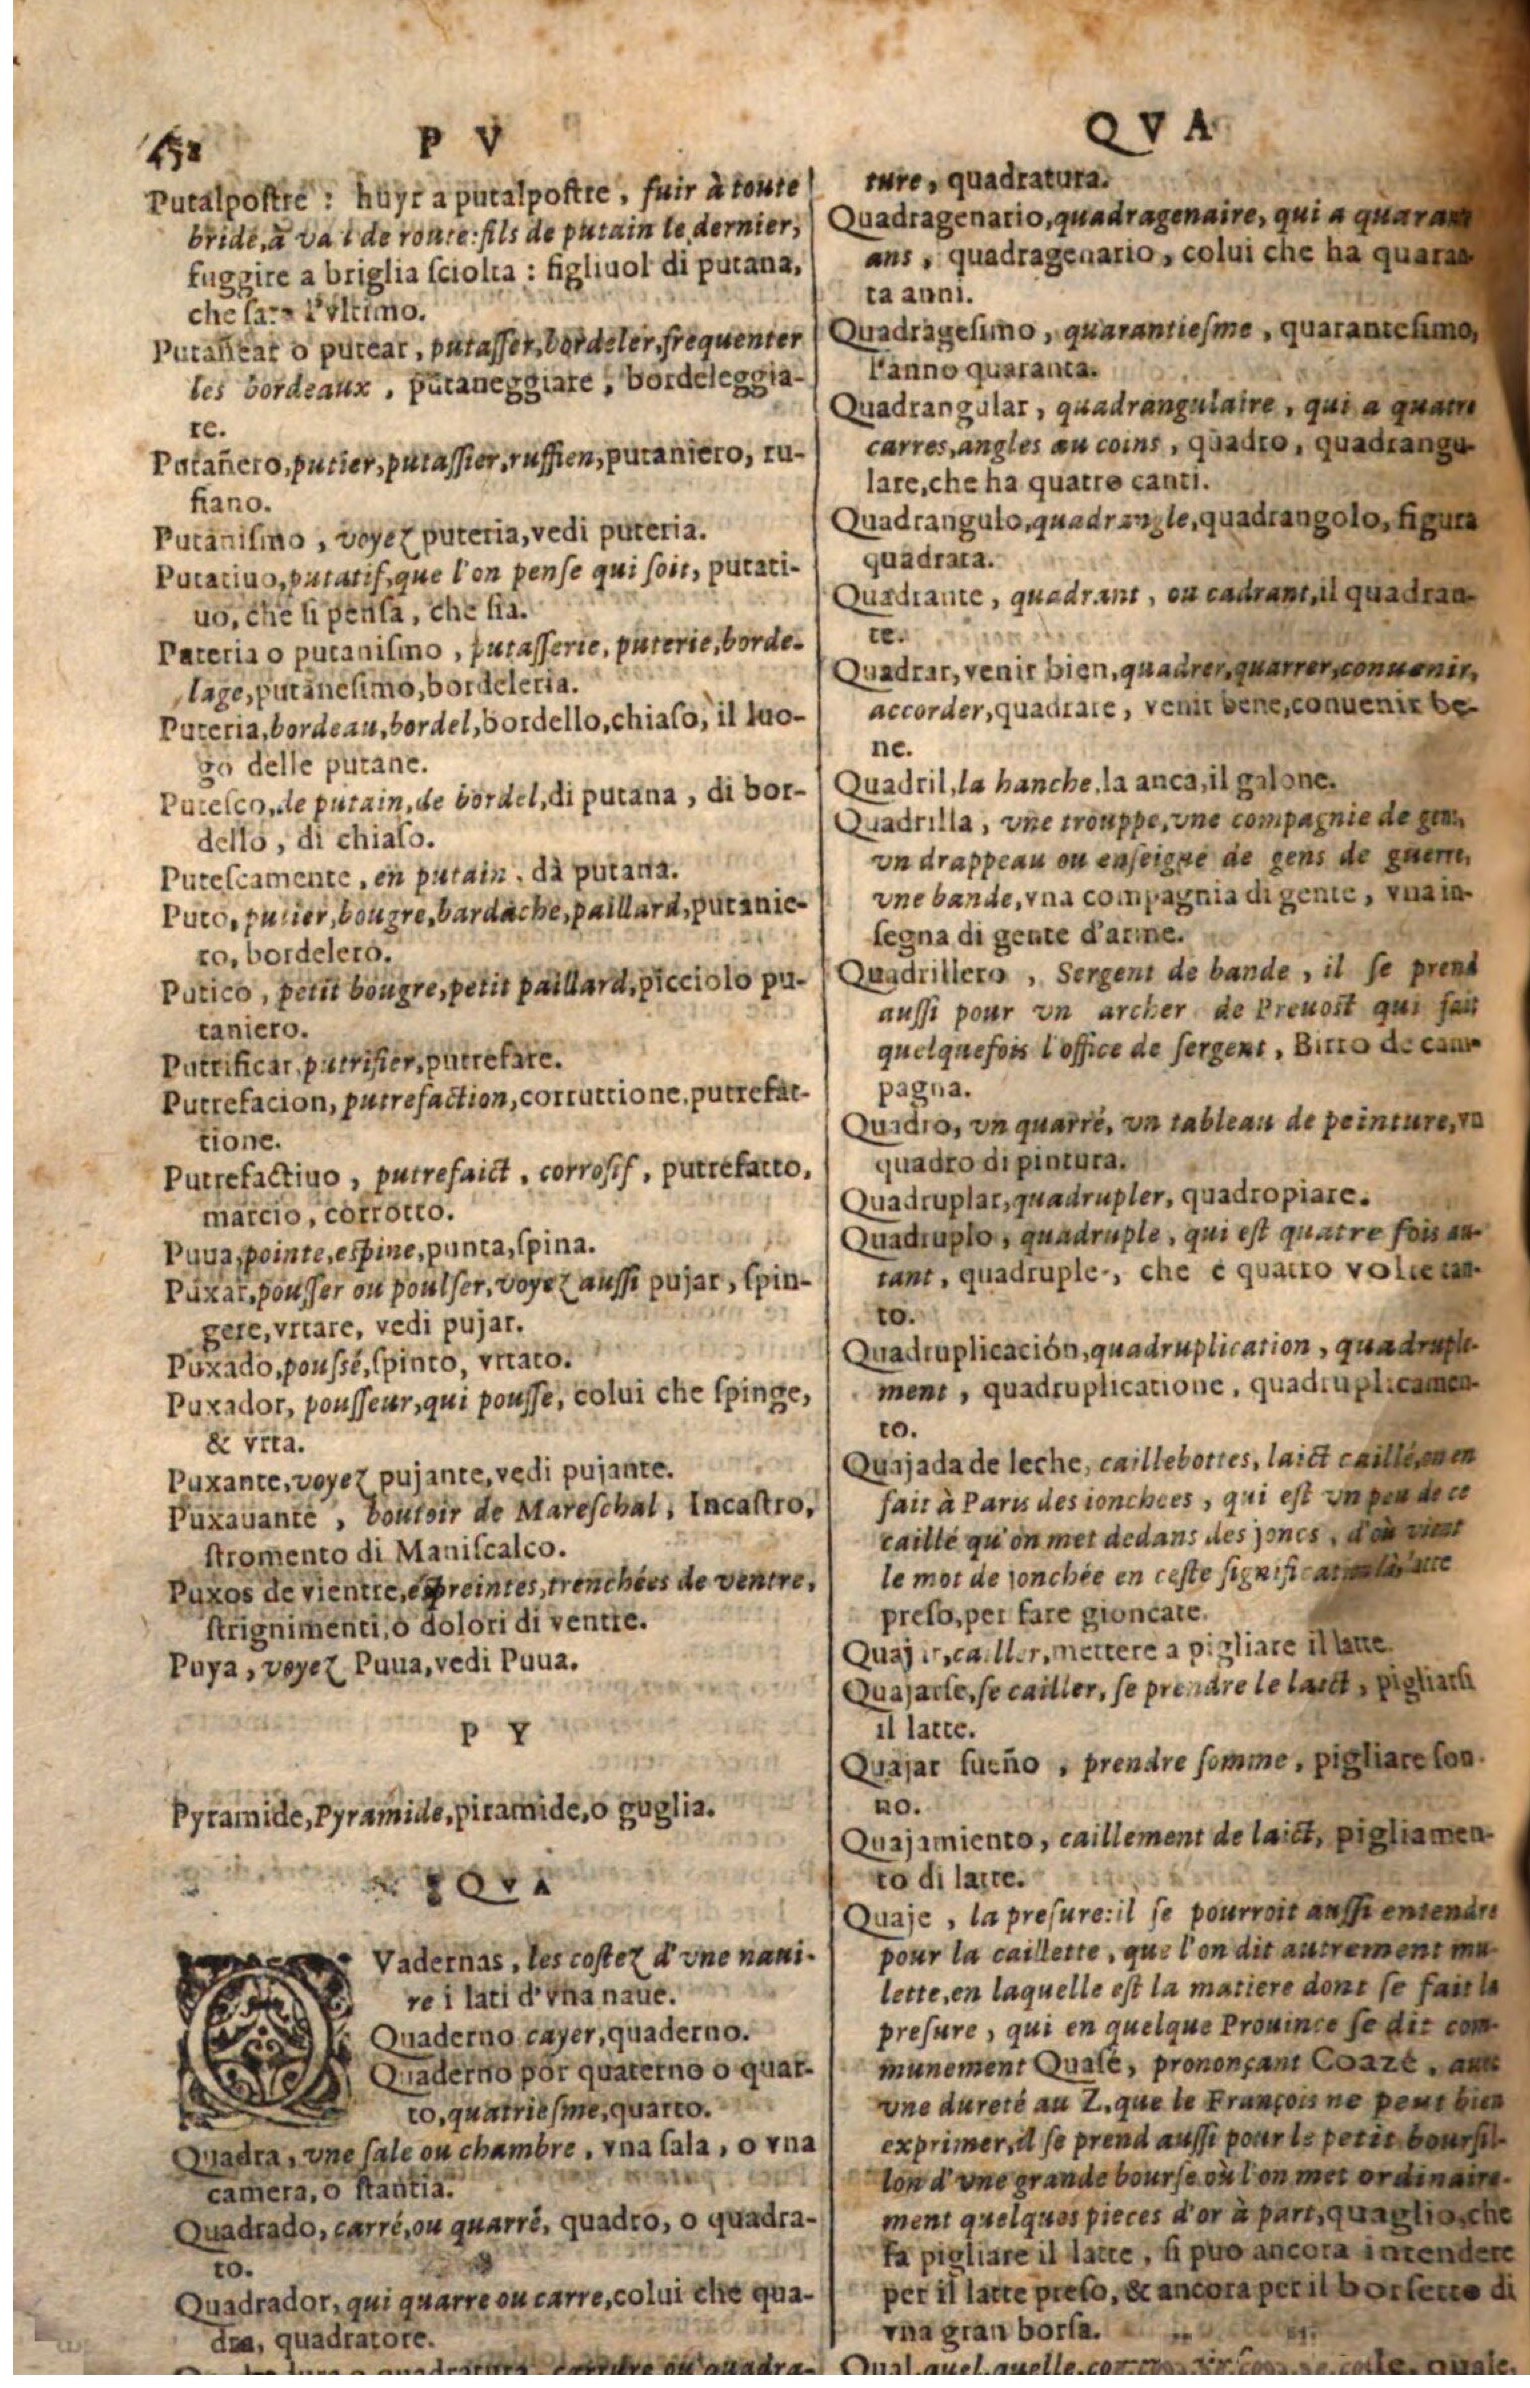 452
P V
Putalpostre : huyr a putalpostre, fuir à toute
bride, à val de route: fils de putain le dernier,
fuggire a briglia sciolta : figliuol di putana,
che sara l'vltimo.
Putañear o putear, putasser, bordeler, frequenter
les bordeaux, putaneggiare, bordeleggia-
re.
Putañero, putier, putassier, ruffien, putaniero, ru-
fiano.
Putanismo, voyez puteria, vedi puteria.
Putatiuo, putatif, que l'on pense qui soit, putati-
uo, che si pensa, che sia.
Puteria o putanismo, putasserie, puterie, borde-
lage, putanesimo, bordeleria.
Puteria, bordeau, bordel, bordello, chiaso, il luo-
go delle putane.
Putesco, de putain, de bordel, di putana, di bor-
dello, di chiaso.
Putescamente, en putain, dà putana.
Puto, putier, bougre, bardache, paillard, putanie-
ro, bordelero.
Putico, petit bougre, petit paillard, picciolo pu-
taniero.
Putrificar, putrifier, putrefare.
Putrefacion, putrefaction, corruttione, putrefat-
tione.
Putrefactiuo, putrefaict, corrosif, putrefatto,
marcio, corrotto.
Puua, pointe, espine, punta, spina.
Puxar, pousser ou poulser, voyez aussi pujar, spin-
gere, vrtare, vedi pujar.
Puxado, poussé, spinto, vrtato.
Puxador, pousseur, qui pousse, colui che spinge,
& vrta.
Puxante, voyez pujante, vedi pujante.
Puxauante, boutoir de Mareschal, Incastro,
stromento di Maniscalco.
Puxos de vientre, espreintes, trenchées de ventre,
strignimenti, o dolori di ventre.
Puya, voyez Puua, vedi Puua.
P Y
Pyramide, Pyramide, piramide, o guglia.
QVA
QVadernas, les costez d'vne naui-
re i lati d'vna naue.
Quaderno cayer, quaderno.
Quaderno por quaterno o quar-
to, quatriesme, quarto.
Quadra, vne sale ou chambre, vna sala, o vna
camera, o stantia.
Quadrado, carré, ou quarré, quadro, o quadra-
to.
Quadrador, qui quarre ou carre, colui che qua-
dra, quadratore.
quadratura, carrure ou quadra-
QVA
ture, quadratura.
Quadragenario, quadragenaire, qui a quarante
ans, quadragenario, colui che ha quaran-
ta anni.
Quadragesimo, quarantiesme, quarantesimo,
l'anno quaranta.
Quadrangular, quadrangulaire, qui a quatre
carres, angles au coins, quadro, quadrangu-
lare, che ha quatro canti.
Quadrangulo, quadrangle, quadrangolo, figura
quadrata.
Quadrante, quadrant, ou cadrant, il quadran-
te.
Quadrar, venir bien, quadrer, quarrer, conuenir,
accorder, quadrare, venir bene, conuenir be-
ne.
Quadril, la hanche, la anca, il galone.
Quadrilla, vne trouppe, vne compagnie de gens,
vn drappeau ou enseigne de gens de guerre,
vne bande, vna compagnia di gente, vna in-
segna di gente d'arme.
Quadrillero, Sergent de bande, il se prend
aussi pour vn archer de Preuost qui fait
quelquefois l'office de sergent, Birro de cam-
pagna.
Quadro, vn quarré, vn tableau de peinture, vn
quadro di pintura.
Quadruplar, quadrupler, quadropiare.
Quadruplo, quadruple, qui est quatre fois au-
tant, quadruple, che è quatro volte tan-
to.
Quadruplicación, quadruplication, quadruple-
ment, quadruplicatione, quadruplicamen-
to.
Quajada de leche, caillebottes, laict caillé, on en
fait à Paris des ionchees, qui est vn peu de ce
caillé qu'on met dedans des joncs, d'où vient
le mot de jonchée en ceste signification là, latte
preso, per fare gioncate.
Quajar, cailler, mettere a pigliare il latte.
Quajarse, se cailler, se prendre le laict, pigliarsi
il latte.
Quajar sueño, prendre somme, pigliare son-
no.
Quajamiento, caillement de laict, pigliamen-
to di latte.
Quaje, la presure: il se pourroit aussi entendre
pour la caillette, que l'on dit autrement mu-
lette, en laquelle est la matiere dont se fait la
presure, qui en quelque Prouince se dit com-
munement Quase, prononçant Coaze, auec
vne dureté au Z, que le François ne peut bien
exprimer, il se prend aussi pour le petit boursil-
lon d'vne grande bourse où l'on met ordinaire-
ment quelques pieces d'or à part, quaglio, che
fa pigliare il latte, si puo ancora intendere
per il latte preso, & ancora per il borsetto di
vna gran borsa.
Qual, quel, quelle,